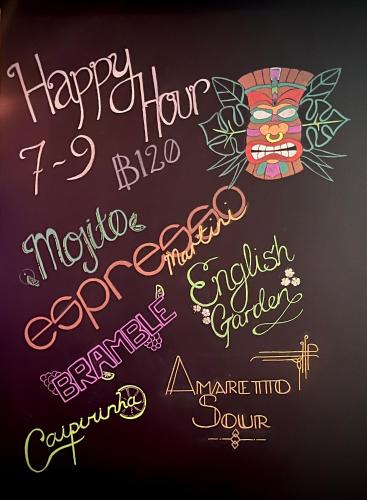 Happy Hour
7~9 ฿120
Mojito
espresso
Martini
English
Garden
BRAMBLE
AMARETTO
SOUR
Caipirinha